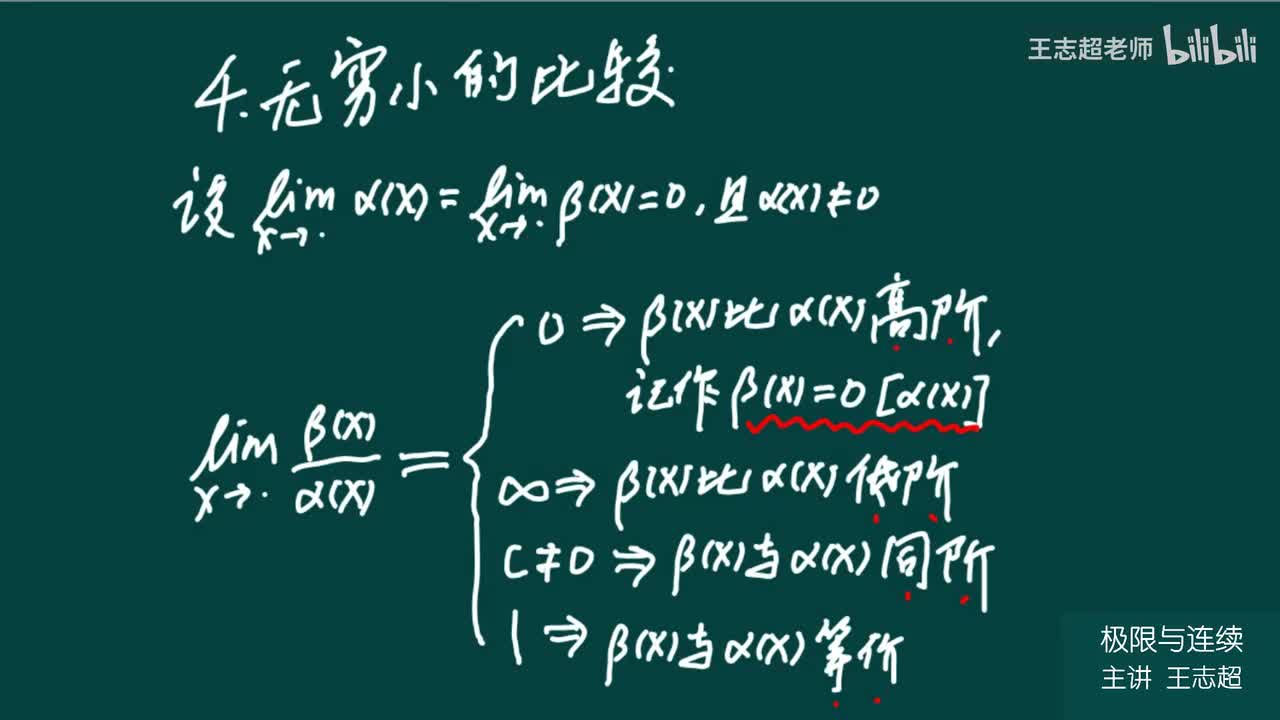 王志超老师 bilibili
4.无穷小的比较
设 lim α(x) = lim β(x) = 0 , 且 α(x) ≠ 0
x→· x→·
0 ⇒ β(x)比 α(x)高阶,
记作 β(x) = 0 [α(x)]
lim β(x)/α(x) =
x→·
∞ ⇒ β(x)比 α(x)低阶
C ≠ 0 ⇒ β(x)与 α(x)同阶
1 ⇒ β(x)与 α(x)等价
极限与连续
主讲 王志超